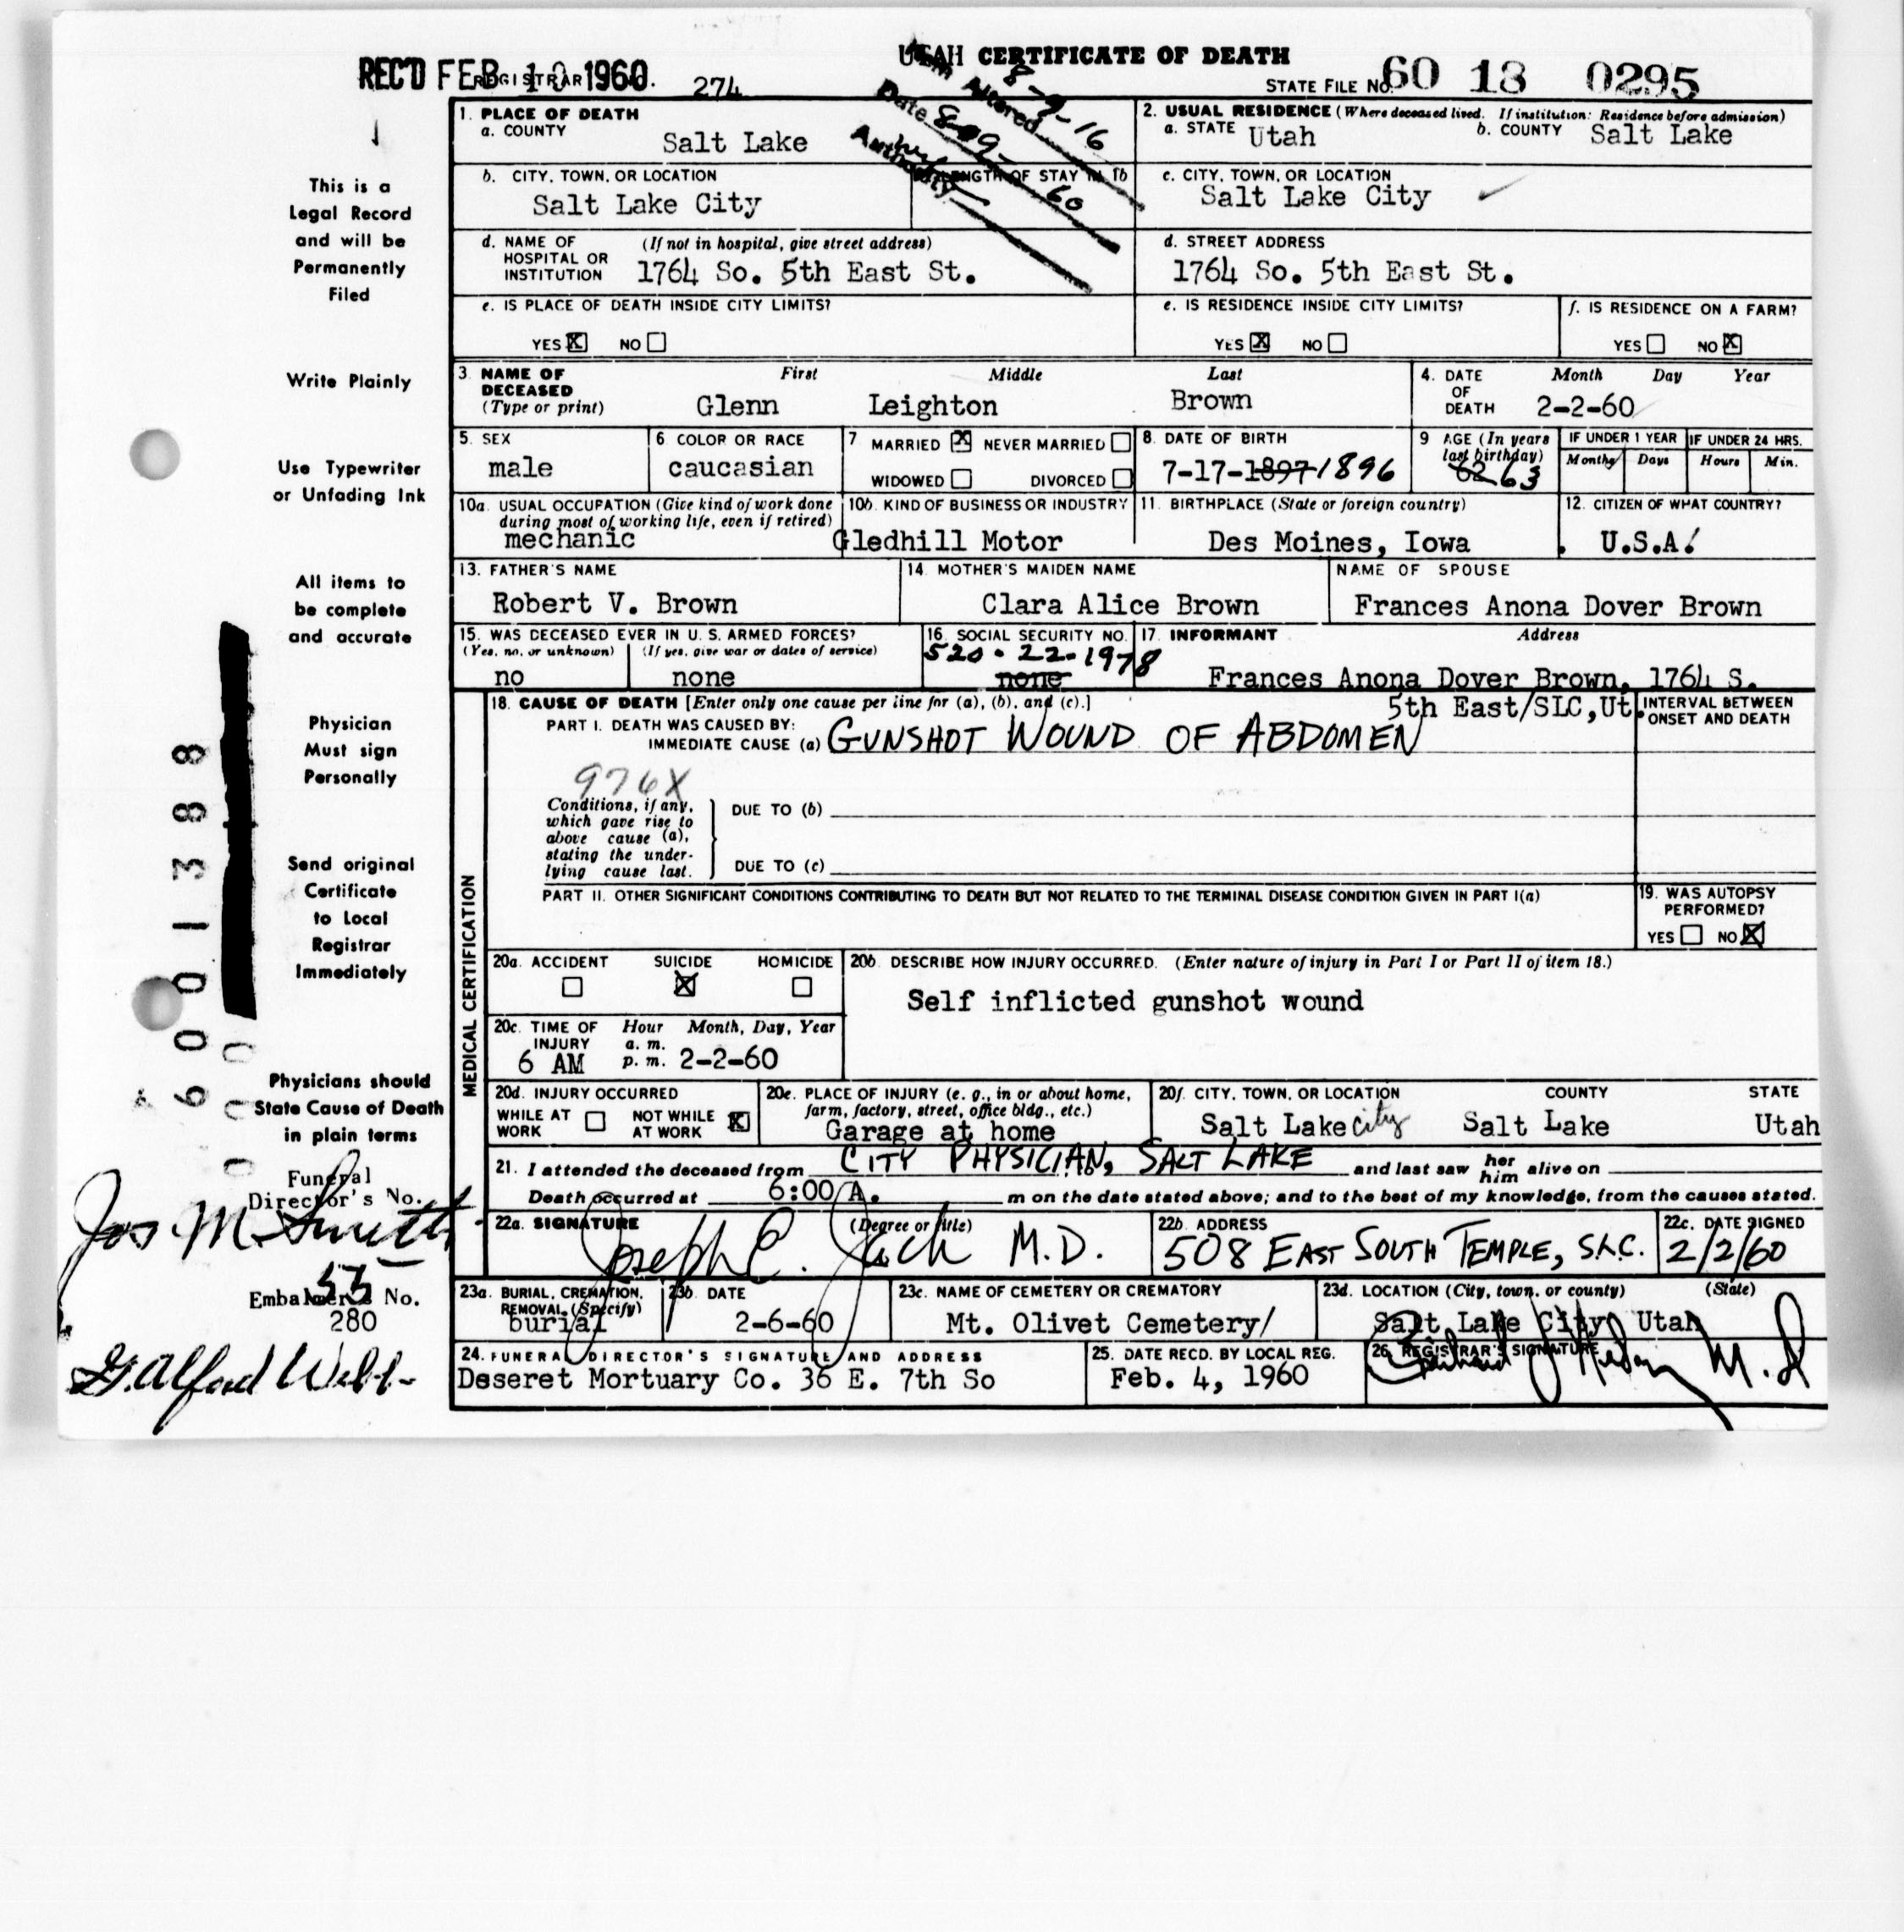 UTAH CERTIFICATE OF DEATH
REC'D FEB 10 1960
REGISTRAR'S NO. 274
STATE FILE NO. 60 18 0295
Item Altered 8-9-16
Date 8-09-60
Authority
1. PLACE OF DEATH
a. COUNTY
Salt Lake
2. USUAL RESIDENCE (Where deceased lived. If institution: Residence before admission)
a. STATE Utah b. COUNTY Salt Lake
b. CITY, TOWN, OR LOCATION
Salt Lake City
LENGTH OF STAY IN 1b
c. CITY, TOWN, OR LOCATION
Salt Lake City
d. NAME OF HOSPITAL OR INSTITUTION (If not in hospital, give street address)
1764 So. 5th East St.
d. STREET ADDRESS
1764 So. 5th East St.
e. IS PLACE OF DEATH INSIDE CITY LIMITS?
YES X NO
e. IS RESIDENCE INSIDE CITY LIMITS?
YES X NO
f. IS RESIDENCE ON A FARM?
YES NO X
3. NAME OF DECEASED (Type or print)
First Middle Last
Glenn Leighton Brown
4. DATE OF DEATH Month Day Year
2-2-60
5. SEX
male
6. COLOR OR RACE
caucasian
7 MARRIED X NEVER MARRIED
WIDOWED DIVORCED
8. DATE OF BIRTH
7-17-1897 1896
9 AGE (In years last birthday)
62 63
IF UNDER 1 YEAR
Months Days
IF UNDER 24 HRS.
Hours Min.
10a. USUAL OCCUPATION (Give kind of work done during most of working life, even if retired)
mechanic
10b. KIND OF BUSINESS OR INDUSTRY
Gledhill Motor
11. BIRTHPLACE (State or foreign country)
Des Moines, Iowa
12. CITIZEN OF WHAT COUNTRY?
U.S.A.
13. FATHER'S NAME
Robert V. Brown
14. MOTHER'S MAIDEN NAME
Clara Alice Brown
NAME OF SPOUSE
Frances Anona Dover Brown
15. WAS DECEASED EVER IN U. S. ARMED FORCES?
(Yes, no, or unknown) (If yes, give war or dates of service)
no none
16. SOCIAL SECURITY NO.
520-22-1978
none
17. INFORMANT Address
Frances Anona Dover Brown, 1764 S.
5th East/SLC,Ut.
18. CAUSE OF DEATH [Enter only one cause per line for (a), (b), and (c).]
INTERVAL BETWEEN ONSET AND DEATH
PART I. DEATH WAS CAUSED BY:
IMMEDIATE CAUSE (a) GUNSHOT WOUND OF ABDOMEN
976X
Conditions, if any, which gave rise to above cause (a), stating the underlying cause last.
DUE TO (b)
DUE TO (c)
PART II. OTHER SIGNIFICANT CONDITIONS CONTRIBUTING TO DEATH BUT NOT RELATED TO THE TERMINAL DISEASE CONDITION GIVEN IN PART I(a)
19. WAS AUTOPSY PERFORMED?
YES NO X
MEDICAL CERTIFICATION
20a. ACCIDENT SUICIDE HOMICIDE
X
20b. DESCRIBE HOW INJURY OCCURRED. (Enter nature of injury in Part I or Part II of item 18.)
Self inflicted gunshot wound
20c. TIME OF INJURY Hour Month, Day, Year
a. m.
p. m.
6 AM 2-2-60
20d. INJURY OCCURRED
WHILE AT WORK NOT WHILE AT WORK X
20e. PLACE OF INJURY (e. g., in or about home, farm, factory, street, office bldg., etc.)
Garage at home
20f. CITY, TOWN, OR LOCATION COUNTY STATE
Salt Lake City Salt Lake Utah
21. I attended the deceased from CITY PHYSICIAN, SALT LAKE and last saw her him alive on
Death occurred at 6:00 A. m on the date stated above; and to the best of my knowledge, from the causes stated.
22a. SIGNATURE (Degree or title)
Joseph E. Jack M.D.
22b. ADDRESS
508 EAST SOUTH TEMPLE, S.L.C.
22c. DATE SIGNED
2/2/60
23a. BURIAL, CREMATION, REMOVAL (Specify)
burial
23b. DATE
2-6-60
23c. NAME OF CEMETERY OR CREMATORY
Mt. Olivet Cemetery/
23d. LOCATION (City, town, or county) (State)
Salt Lake City Utah
24. FUNERAL DIRECTOR'S SIGNATURE AND ADDRESS
Deseret Mortuary Co. 36 E. 7th So
25. DATE RECD. BY LOCAL REG.
Feb. 4, 1960
26. REGISTRAR'S SIGNATURE
M.D
This is a
Legal Record
and will be
Permanently
Filed
Write Plainly
Use Typewriter
or Unfading Ink
All items to
be complete
and accurate
Physician
Must sign
Personally
Send original
Certificate
to Local
Registrar
Immediately
Physicians should
State Cause of Death
in plain terms
Funeral
Director's No.
Jos M. Smith
55
Embalmer's No.
280
G. Alford Webb
6001388